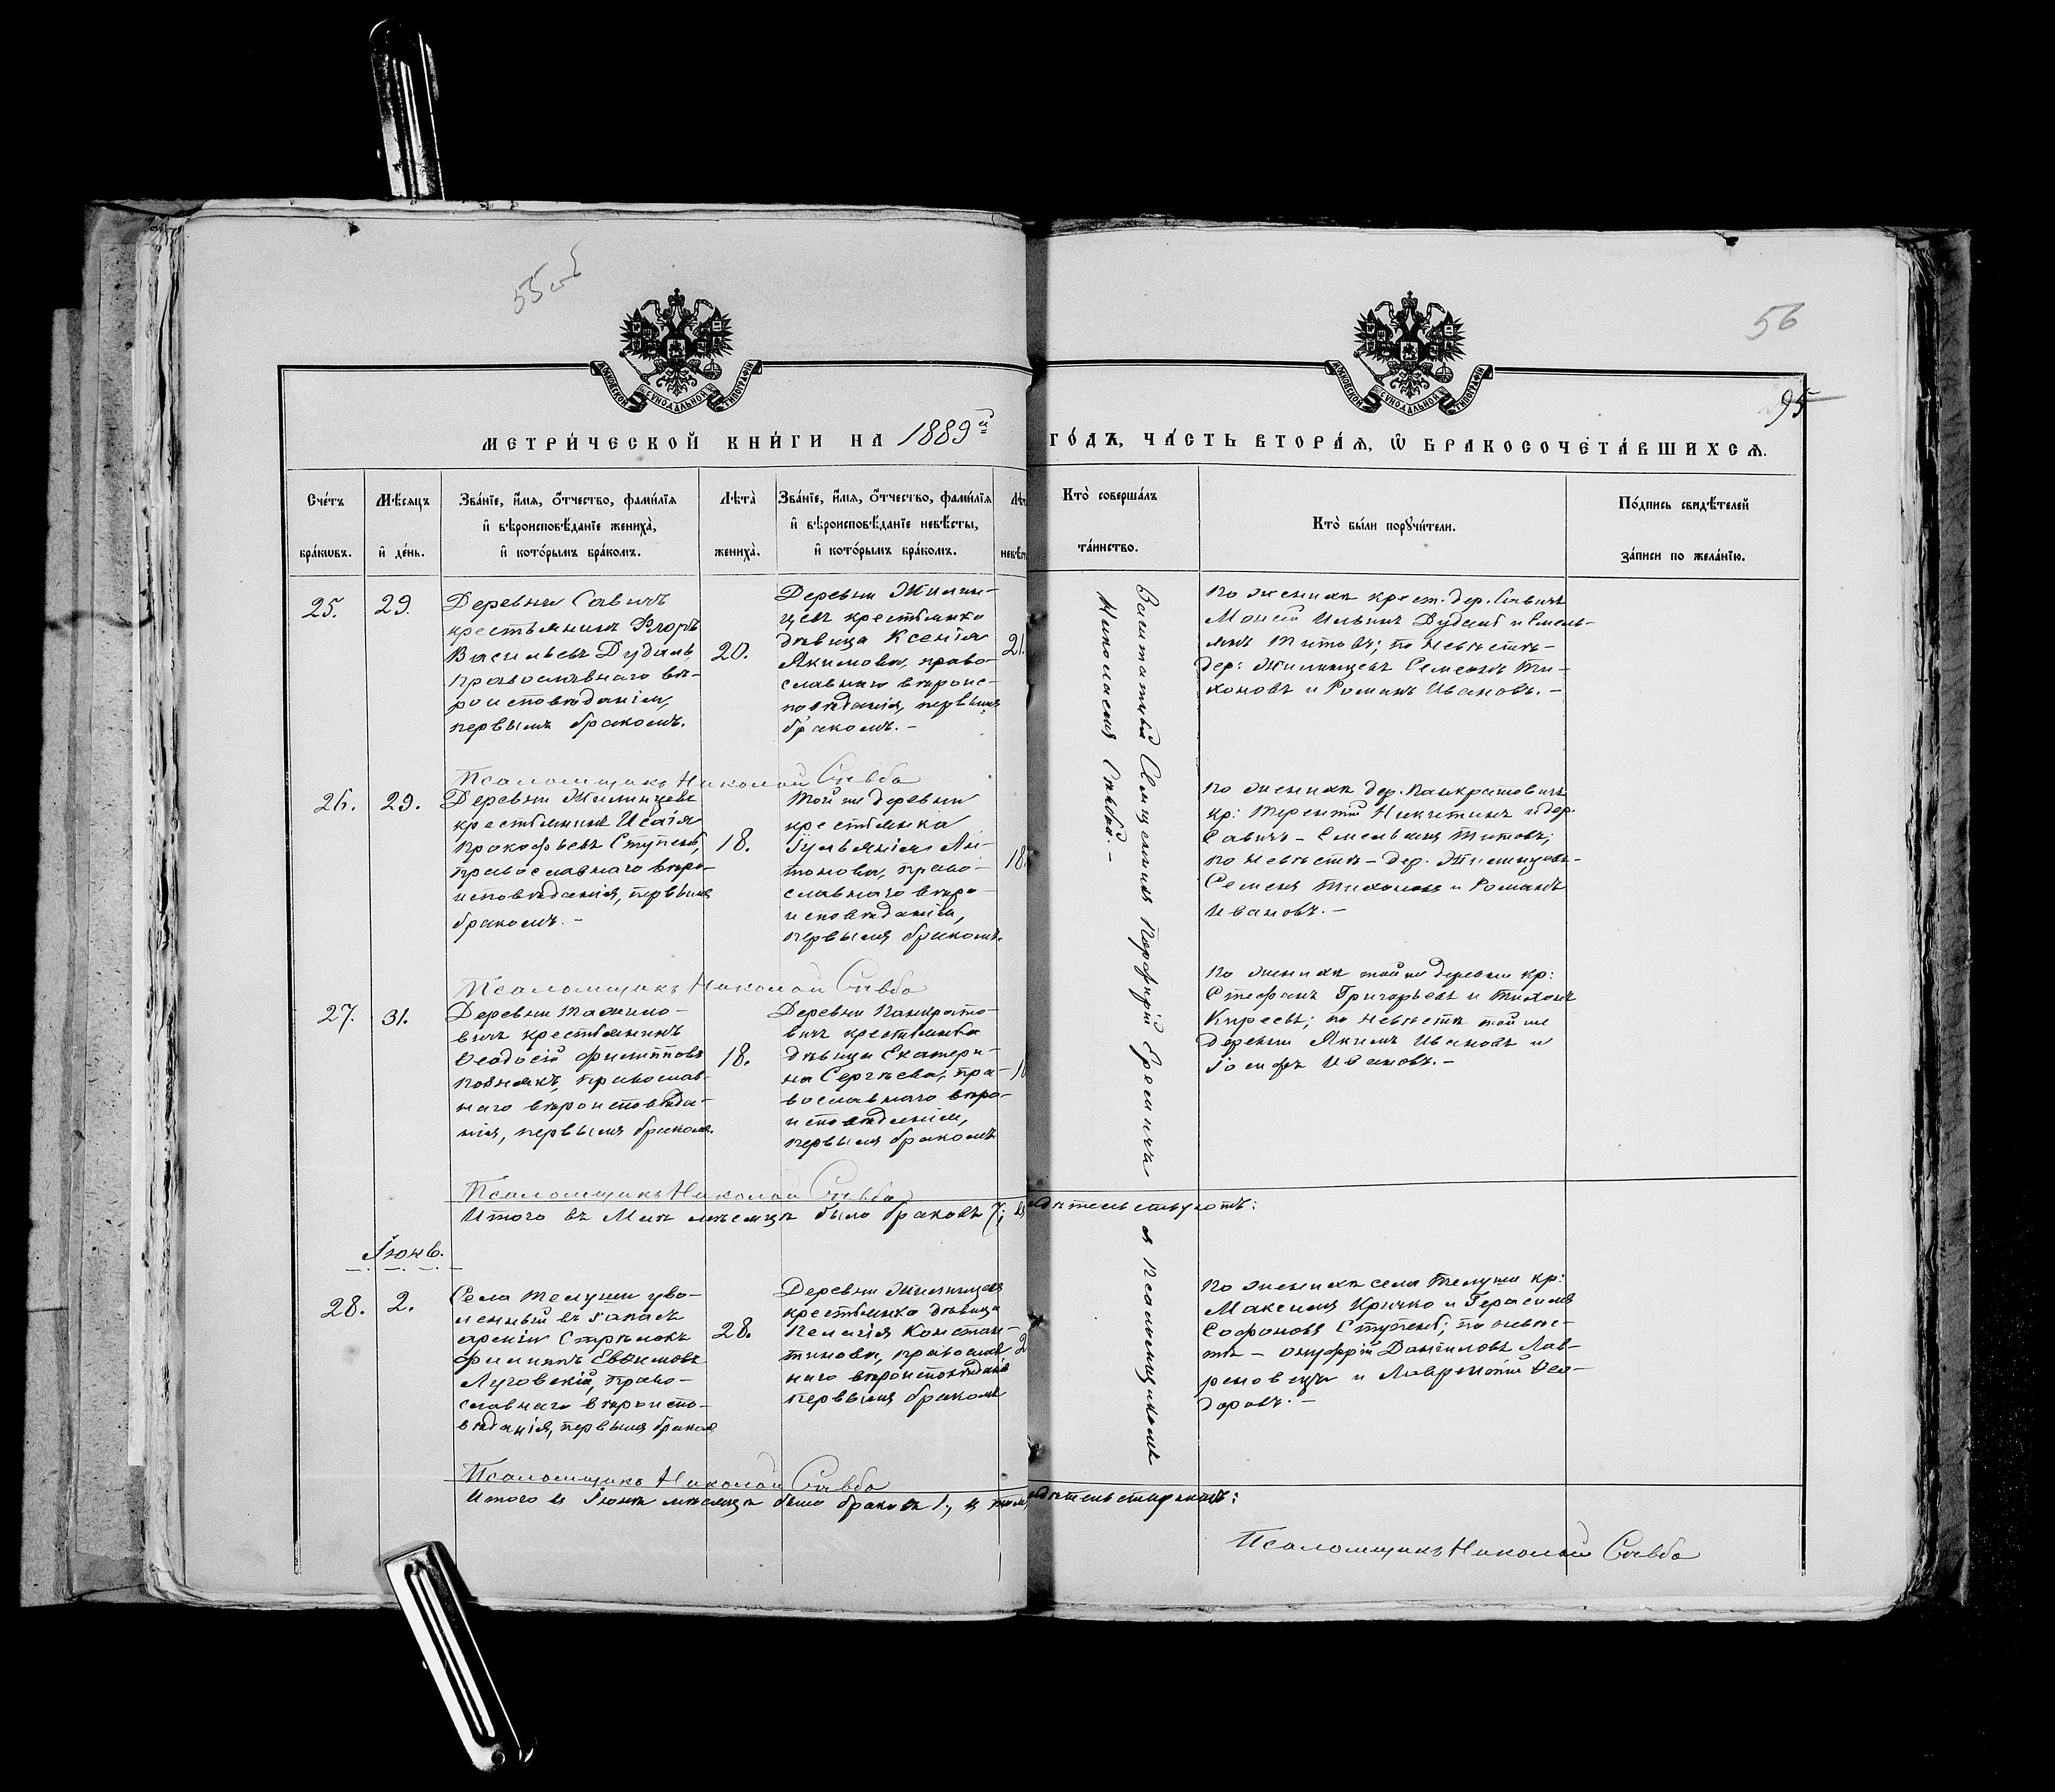 55 об
56
МОСКОВСКОЙ СѴНОДАЛЬНОЙ ТИПОГРАФІИ
МОСКОВСКОЙ СѴНОДАЛЬНОЙ ТИПОГРАФІИ
95
МЕТРИ́ЧЕСКОЙ КНИ́ГИ НА 1889й
ГО́ДЪ, ЧА́СТЬ ВТОРА́Я, Ѡ БРАКОСОЧЕТА́ВШИХСЯ.
Сче́тъ
бра́кѡвъ.
Мѣ́сяцъ
и҆ де́нь.
Зва́нїе, и҆́мя, ѻ҆́тчество, фами́лїя
и҆ вѣроисповѣ́данїе жениха̀,
и҆ кото́рымъ бра́комъ.
Лѣта̀
жениха̀.
Зва́нїе, и҆́мя, ѻ҆́тчество, фами́лїя
и҆ вѣроисповѣ́данїе невѣ́сты,
и҆ кото́рымъ бра́комъ.
Лѣт
невѣст
Кто̀ соверша́лъ
та́инство.
Кто̀ бы́ли порꙋчи́тели.
По́дпись свидѣ́телей
за́писи по жела́нїю.
25.
29.
Деревни Савичъ
крестьянинъ Флоръ
Васильевъ Дудаль,
православнаго вѣ-
роисповѣданія,
первымъ бракомъ.
20.
Деревни Жилин-
цевъ крестьянка
дѣвица Ксенія
Якимова, право-
славнаго вѣроис-
повѣданія, первымъ
бракомъ. -
21.
По женихѣ крест. дер. Савичъ
Моисей Ильинъ Дудаль и Емель-
янъ Титовъ; по невѣстѣ -
дер: Жилинцевъ Семенъ Ти-
хоновъ и Романъ Ивановъ. -
Псаломщикъ Николай Савва
26.
29.
Деревни Жилинцевъ
крестьянинъ Исаія
Прокофьевъ Ступень,
православнаго вѣро-
исповѣданія, первымъ
бракомъ. -
18.
Той же деревни
крестьянка
Іульянія Ан-
тонова, право-
славнаго вѣро-
исповѣданія,
первымъ бракомъ.
18
По женихѣ дер. Панкратовичъ
кр: Терентій Никитинъ и дер.
Савичъ - Емельянъ Титовъ;
по невѣстѣ - дер. Жилинцевъ -
Семенъ Тихоновъ и Романъ
Ивановъ. -
Псаломщикъ Николай Савва
27.
31.
вичъ крестьянинъ
Ѳеодосій Филипповъ
православ-
наго вѣроисповѣда-
нія, первымъ бракомъ.
18.
Деревни Панкрато-
вичъ крестьянка
дѣвица Екатери-
на Сергѣева, пра-
вославнаго вѣро-
исповѣданія,
первымъ бракомъ
По женихѣ той же деревни кр:
Стефанъ Григорьевъ и Тихонъ
Киреевъ; по невѣстѣ той же
деревни Якимъ Ивановъ и
Іосифъ Ивановъ. -
Псаломщикъ Николай Савва
Итого въ Маѣ мѣсяцѣ было браковъ 7;
дѣтельствуютъ:
Іюнь.
28.
2.
Села Телуши уво-
ленный въ запасъ
арміи Стрѣлокъ
Филиппъ Евѳимовъ
Луговскій, право-
славнаго вѣроиспо-
вѣданія, первымъ бракомъ
28.
Деревни Жилинцевъ
крестьянка дѣвица
Пелагія Констан-
тинова, православ
наго вѣроисповѣданія
первымъ бракомъ
2
По женихѣ села Телуши кр:
Максимъ Кричко и Герасимъ
Софоновъ Ступень; по невѣс-
тѣ - Онуфрій Даниловъ Лав-
реновецъ и Лаврентій Ѳео-
доровъ. -
Псаломщикъ Николай Савва
Итого въ Іюнѣ мѣсяцѣ было браковъ 1,
дѣтельствуютъ:
Псаломщикъ Николай Савва
Священникъ Порфирій Еремичъ съ псаломщикомъ
Николаемъ Саввой. -